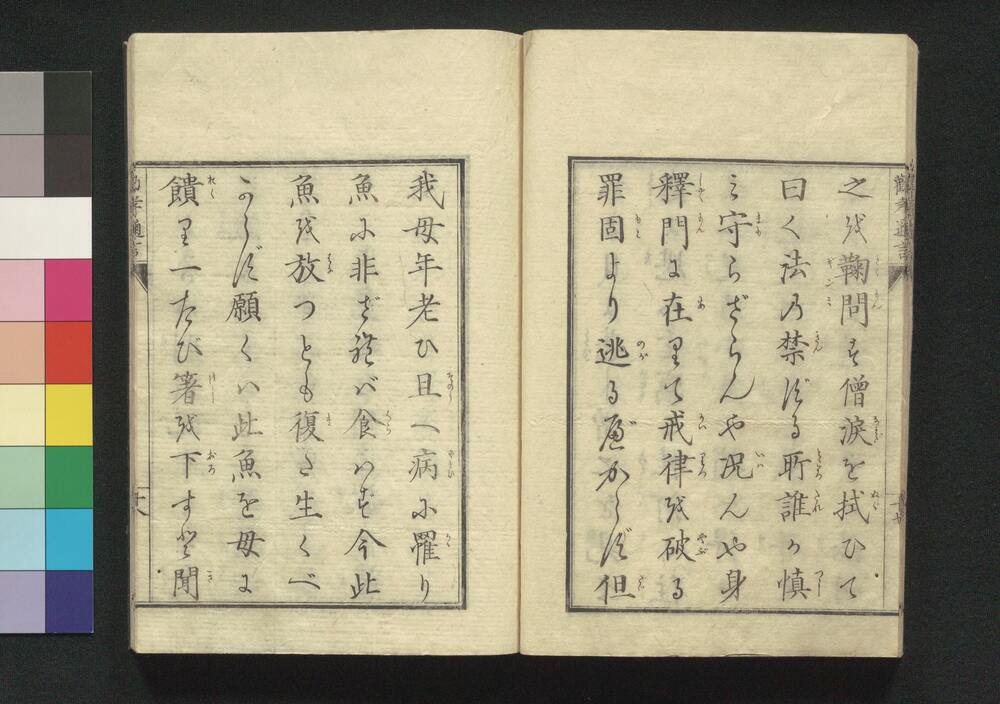 之を鞠問す僧涙を拭ひて
曰く法の禁ずる所誰か慎
み守らざらんや况んや身
釋門に在りて戒律を破る
罪固より逃る可からず但
我母年老ひ且へ病に罹り
魚に非ざれば食はず今此
魚を放つとも復た生くべ
からず願くハ此魚を母に
饋り一たび箸を下すと聞